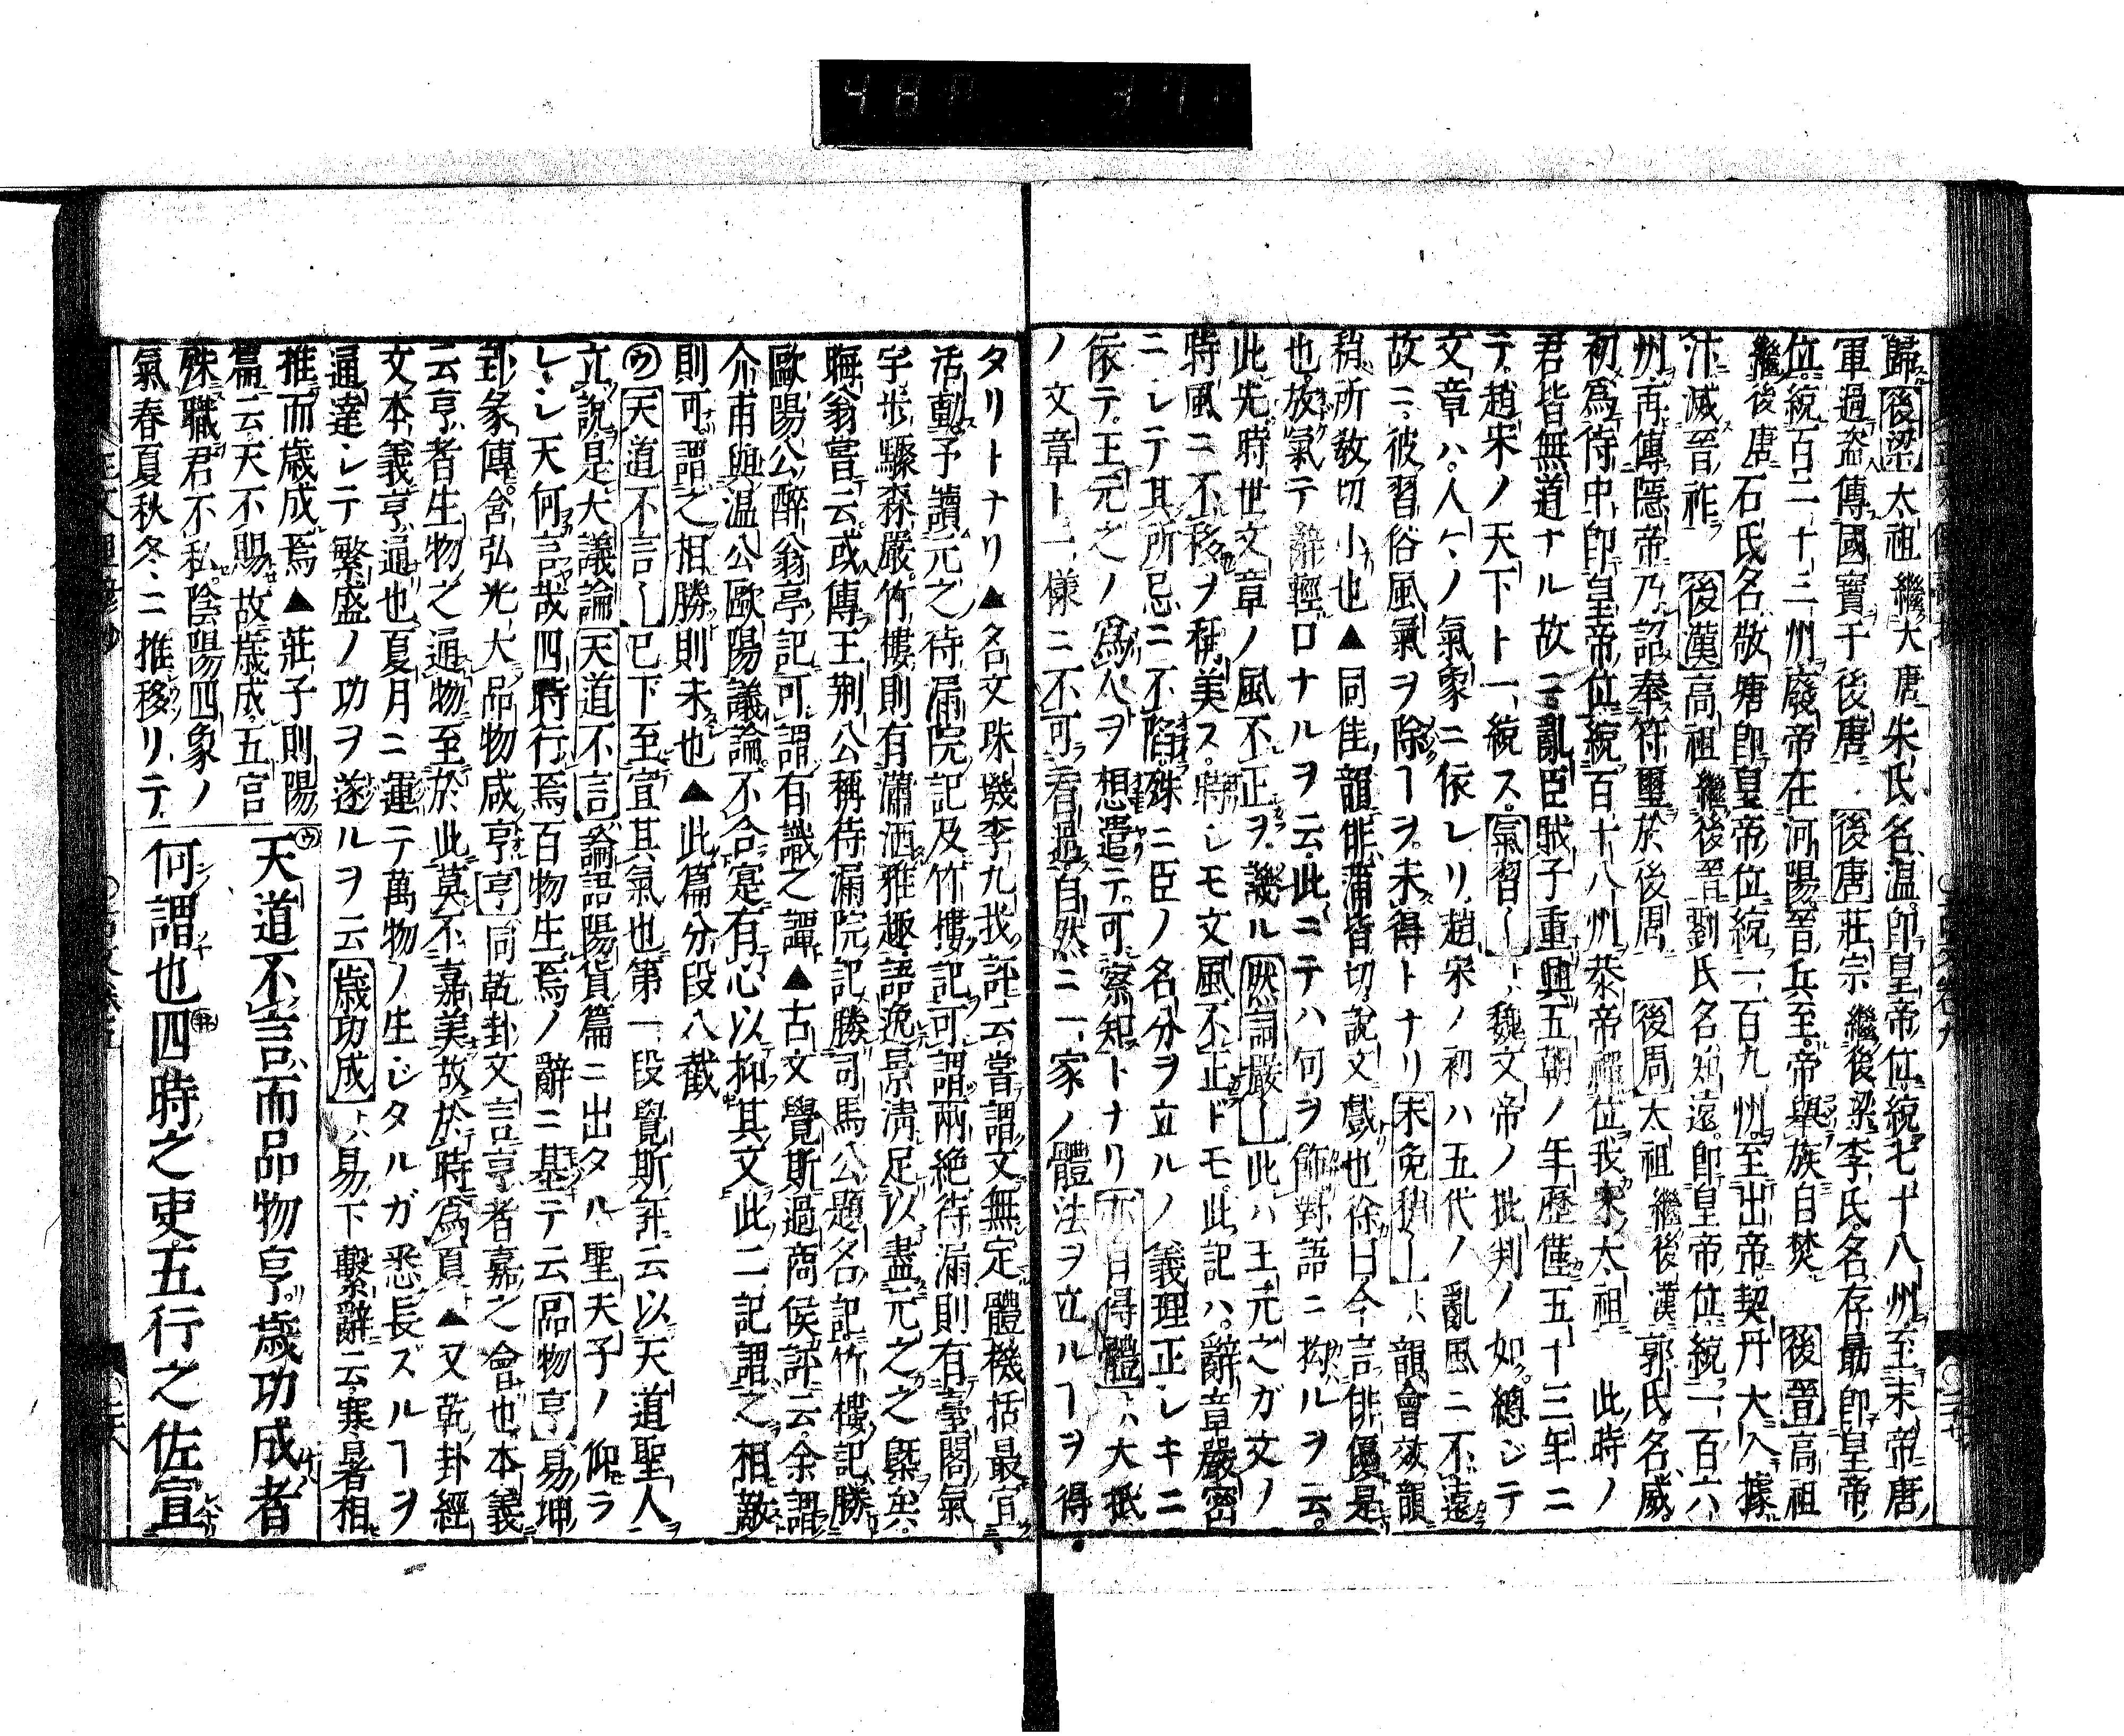 歸後梁太祖繼大唐朱氏名温即皇帝位統七十八州至末帝唐
軍過盗傳國寶于後唐後唐莊宗繼後梁李氏名存勗即皇帝
位統百二十三州廢帝在河陽晉兵至帝舉族自焚後晉高祖
繼後唐石氏名敬瑭即皇帝位統一百九州至出帝契丹大入據
汴滅晉祚後漢高祖繼後晉劉氏名知遠即皇帝位統一百六
州再傳隱帝乃詔奉符璽於後周後周太祖繼後漢郭氏名威
初爲侍中即皇帝位統百十八州恭帝禪位我宋太祖此時ノ
君皆無道ナル故ニ亂臣賊子重興五朝ノ年歷僅五十三年ニ
テ趙宋ノ天下ト一統ス氣習〱ト魏文帝ノ批判ノ如總ジテ
文章ハ人々ノ氣象ニ依レリ趙宋ノ初ハ五代ノ亂風ニ不遠
故ニ彼習俗風氣ヲ除ヿヲ未得トナリ未免稍〱ハ韻會效韻
稍所教切小也▲同佳韻俳蒲皆切説文戲也徐曰今言俳優是
也放氣テ辭輕口ナルヲ云此ニテハ何ヲ飾對語ニ拘ルヲ云
此先時世文章ノ風不正ヲ譏ル然詞嚴〱此ハ王元之ガ文ノ
時風ニ不移ヲ稱美ス時シモ文風不正ドモ此記ハ辭章嚴密
ニシテ其所忌ニ不陷殊ニ臣ノ名分ヲ立ルノ義理正シキニ
依テ王元之ノ爲人ヲ想遣テ可察知トナリ亦自得體ハ大抵
ノ文章ト一樣ニ不可看過自然ニ一家ノ體法ヲ立ルヿヲ得
タリトナリ▲名文珠璣李九我評云嘗謂文無定體機括最宜
活動予讀元之待漏院記及竹樓記可謂兩絶待漏則有臺閣氣
宇步驟森嚴竹樓則有瀟洒雅趣語逸景清足以盡元之之槩矣
晦翁嘗云或傳王荆公稱待漏院記勝司馬公題名記竹樓記勝
歐陽公醉翁亭記可謂有識之譚▲古文覺斯過商侯評云余謂
介甫與温公歐陽議論不合寔有心以抑其文此二記謂之相敵
則可謂之相勝則未也▲此篇分段八截
㋒天道不言〱已下至宣其氣也第一段覺斯評云以天道聖人
立説是大議論天道不言論語陽貨篇ニ出タル聖夫子ノ仰ラ
レシ天何言哉四時行焉百物生焉ノ辭ニ基テ云品物亨易坤
卦彖傳含弘光大品物咸亨亨同乾卦文言亨者嘉之會也本義
云亨者生物之通物至於此莫不嘉美故於時爲夏▲又乾卦經
文本義亨通也夏月ニ運テ萬物ノ生ジタルガ悉長ズルヿヲ
通達シテ繁盛ノ功ヲ遂ルヲ云歳功成ハ易下繫辭云寒暑相
推而歳成焉▲莊子則陽
篇云天不賜故歳成五官
殊職君不私陰陽四象ノ
氣春夏秋冬ニ推移リテ
天道不言而品物亨歳功成者
何謂也四時之吏五行之佐宣